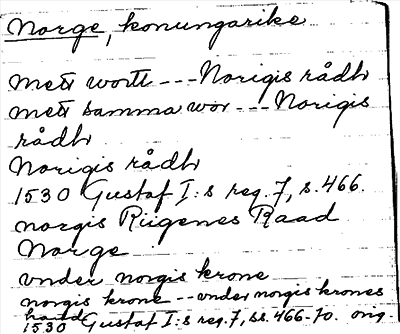 Norge, konungarike
mett wortt --- Norigis rådh
mett samma wor --- Norigis
rådh
Norigis rådh
1530 Gustaf I:s reg. 7, s. 466.
norgis Riigenes Raad
Norge
vnder norgis krone
norgis krone -- vnder norgis krones
haand
1530 Gustaf I:s reg. 7, ss. 466-70. orig.